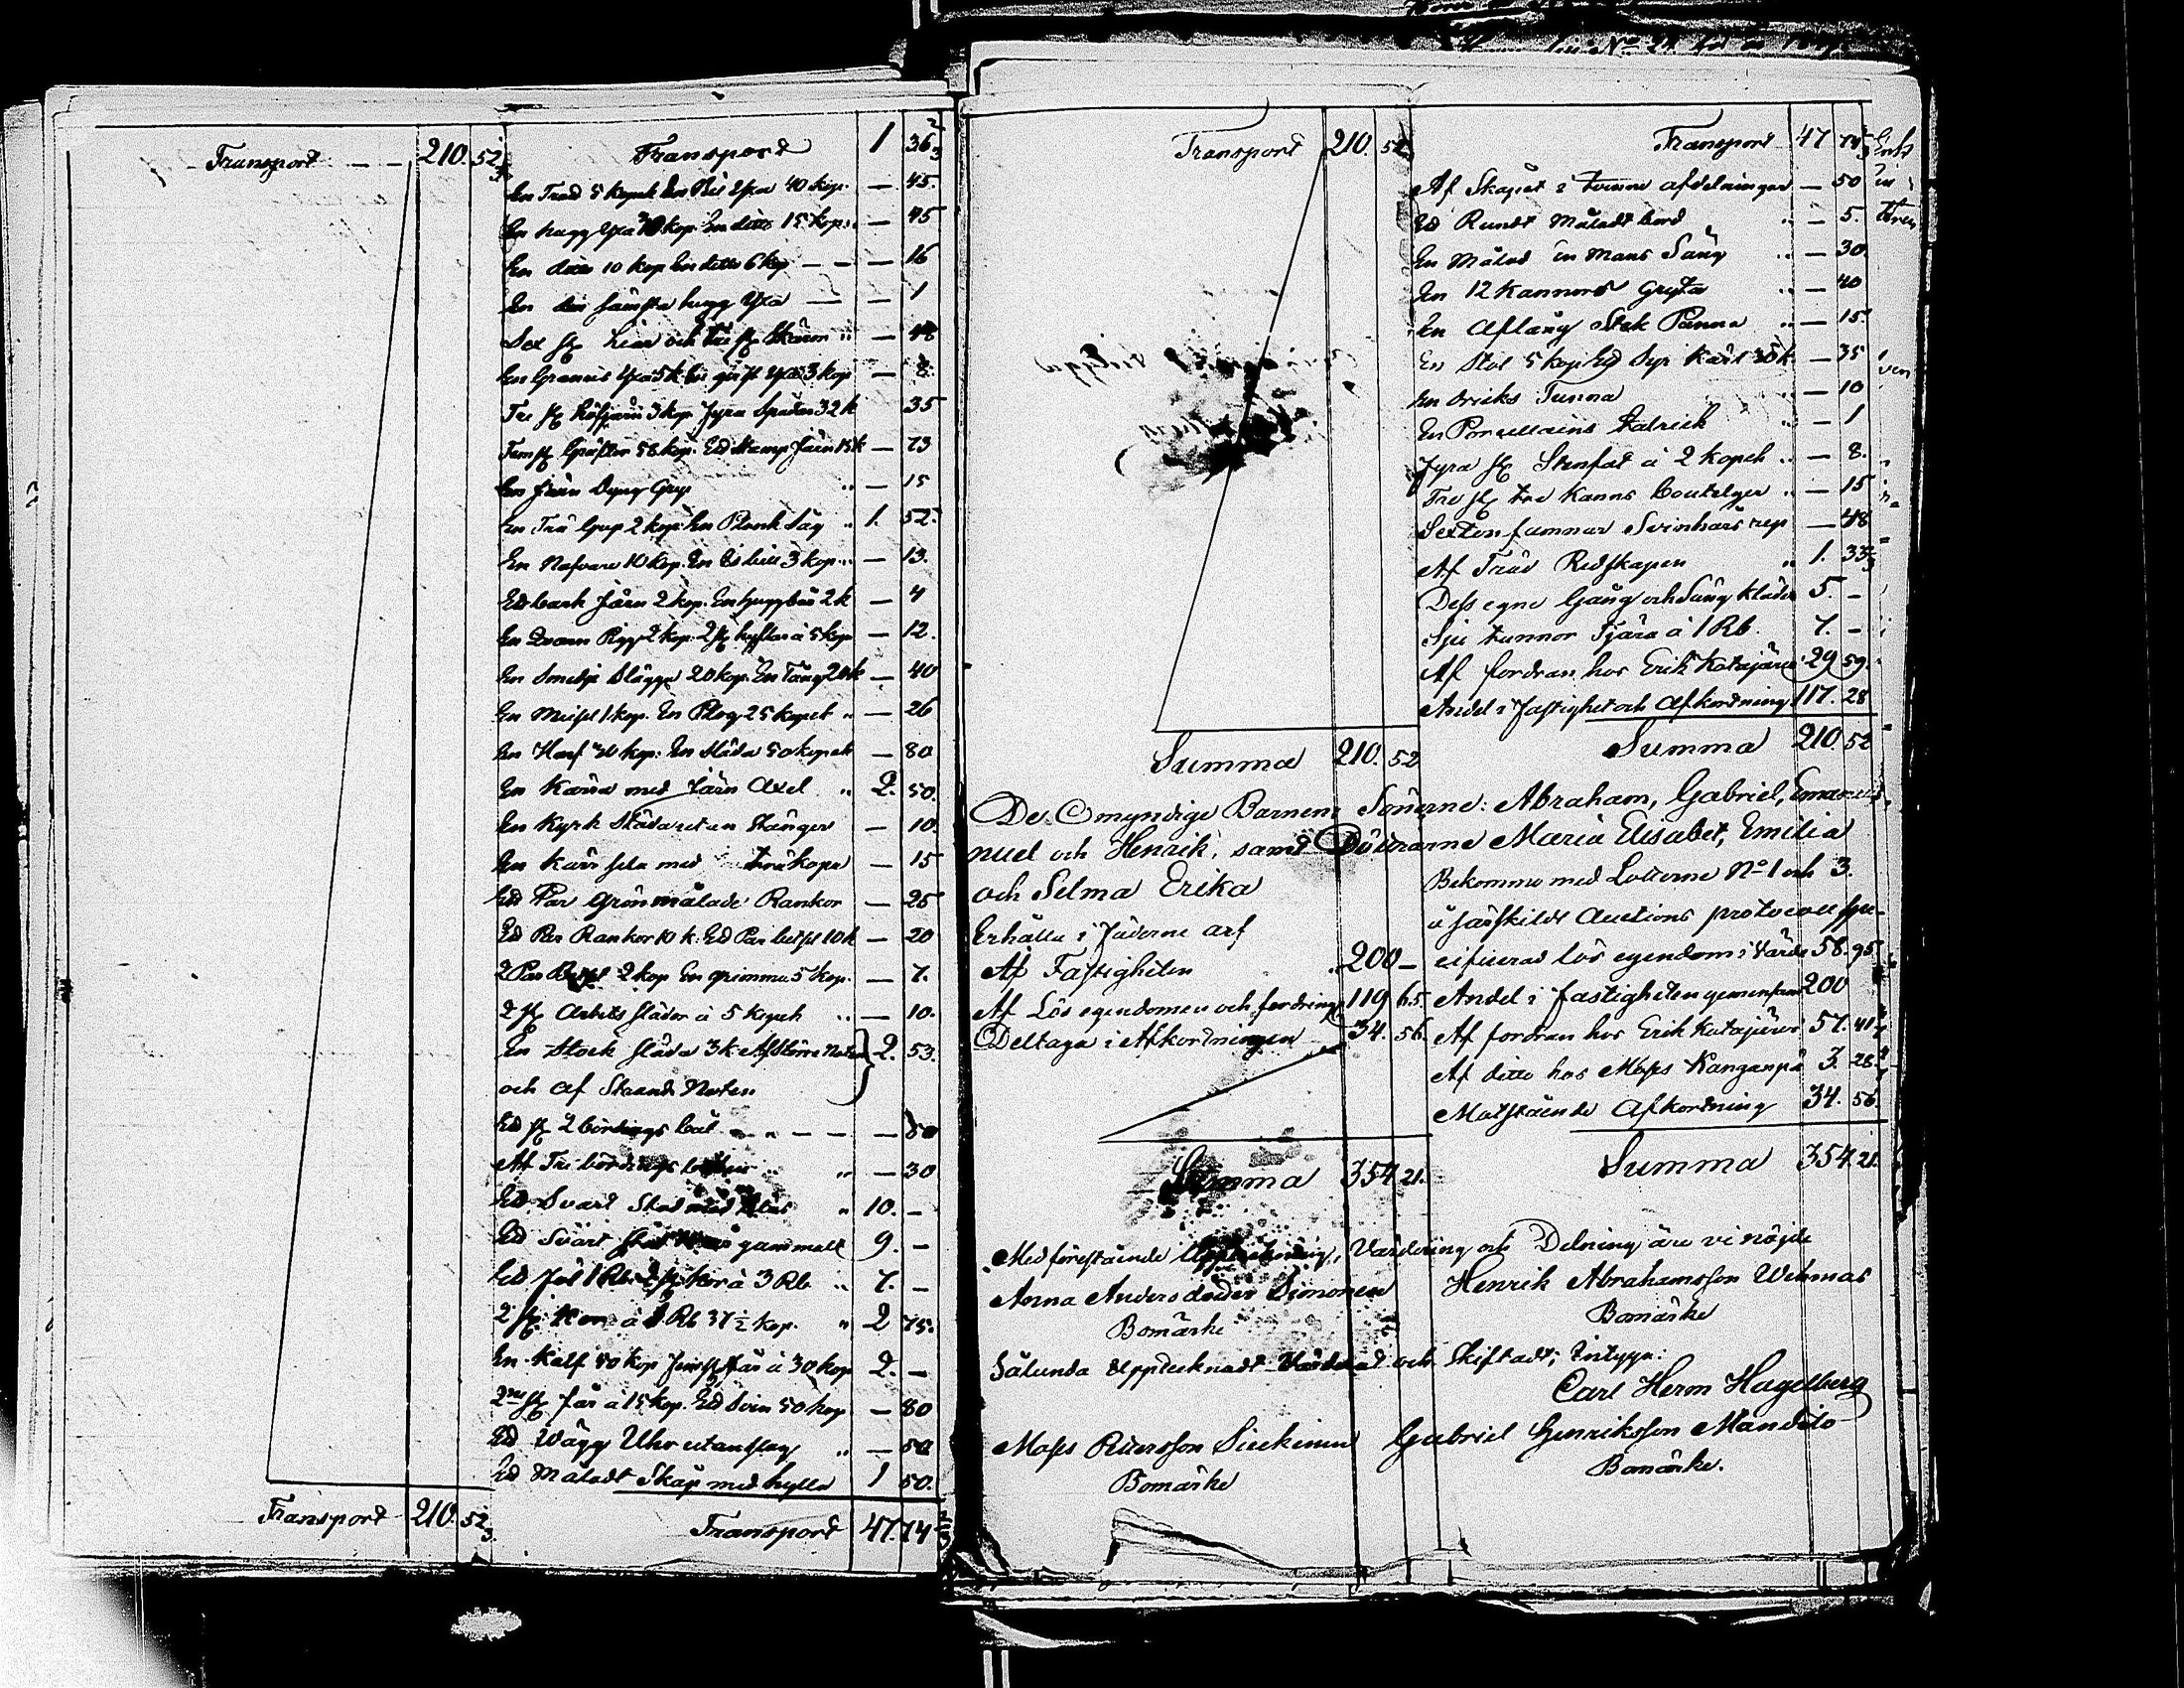 Transport — — 210. 52
Transport 1 36 2/3
En Trad 5 kopek En Bil Yxa 40 kop. — 45.
En hugg Yxa 30 kop. En ditto 15 kop. — 45
En ditto 10 kop En ditto 6 kop — — — 16
En hugg Yxa — — 1
Sex st Liar och st Skäror " — 48
En Yxa 5 k. En Yxa 3 kop — 8.
Tre st 3 kop. Fyra Spadar 32 k — 35
Fem st Gräftor 58 kop. Ed Stamp Järn 15 k — 73
En Järn Dyng Grep " — 15
En Trä Grep 2 kop. En Plank Såg " 1. 52.
En Nafvare 10 kop. En Is bill 3 kop. " — 13.
Ed bark Järn 2 kop. En 2 k — 4
En 2 kop. 2 st hyflar à 5 kop — 12.
En Smedje Slägga 20 kop. En Tång 20 k — 40
En Meisel 1 kop. En Plog 25 kopek " — 26
En Harf kop. En Släda 50 kopek — 80
En Kärra med Järn Axel " 2. 50.
En Kyrk Släda utan Stänger — 10.
En Kärr sela med träkopa — 15
Ed Par Grönmålade Rankor — 25
Ed Par Rankor 10 k. Ed Par betsel 10 k — 20
2 Par Betsel 2 kop En grimma 5 kop. — 7.
2 st Arbets slädor à 5 kopek " — 10.
En Stock släda 3 k. Af Större Noten } 2. 53.
och af Strand Noten
Ed st 2 bördings båt — " — — — 50
Af Tre bördings båten " — 30
Ed Svart Stod med " 10. —
Ed Svart gammalt 9. —
Ed Föl 1 Rb. 2 st Kor à 3 Rb. " 7. —
2 st à 1 Rb 37 1/2 kop. " 2 75.
En Kalf 50 kop Fem st får à 30 kop 2. —
2 st får à 15 kop. Ed Svin 50 kop — 80
Ed Wägg Uhr utan slag " — 50
Ed Måladt Skåp med hylla 1 50.
Transport 210. 52
Transport 47. 74
Transport 210. 52
Transport 47 74
Af Skåpet i tvenne afdelningar — 50
Ed Rundt Måladt bord " — 5.
En Målad en Mans Säng " — 30.
En 12 Kannors Gryta " — 40
En Aflång Stek Panna " — 15.
En Stol 5 kop Ed Syr Kärl 30 k — 35
En Dricks Tunna " — 10
En Porcellains Talrick " — 1
Fyra st Stenfat à 2 kopek " — 8.
Tre st tre Kanns bouteljer " — 15
Sexton famnar Svinhårs rep — 48
Af Träd Redskapen " 1. 33
Dess egne Gång och Säng kläder 5. —
Sju tunnor Tjära à 1 Rb. 7. —
Af fordran hos Erik Katajärvi 29 59.
Andel i Fastighet och Afkortning 117. 28
Summa 210. 52
Summa 210. 52
De Omyndige Barnen: Sönerne: Abraham, Gabriel, Emanuel
nuel och Henrik, samt Döttrarne Maria Elisabet, Emilia
och Selma Erika
Erhålla i Fäderne arf
Af Fastigheten " 200 —
Af Lös egendomen och fordringar 119 65.
Deltaga i Afkortningen 34. 56.
Bekomma med Lotterne No 1 och 3.
à särskildt Auctions protocoll spe-
cificerad lös egendom i värde 58. 95
Andel i fastigheten gemensamt 200
Af fordran hos Erik Katajärvi 57. 41
Af ditto hos Moses Kanganpä 3. 28
Motstående Afkortning 34. 56.
Summa 354. 21.
Summa 354. 21.
Med förestående Uppteckning, Värdering och Delning äre vi nöjde
Anna Andersdotter Simonen
Bomärke
Henrik Abrahamsson Wehmas
Bomärke
Sålunda Upptecknadt Värderat och Skiftadt; Intyga:
Carl Herm Hagelberg
Moses Pettersson Siekinen
Bomärke
Gabriel Henriksson Mandilo
Bomärke.